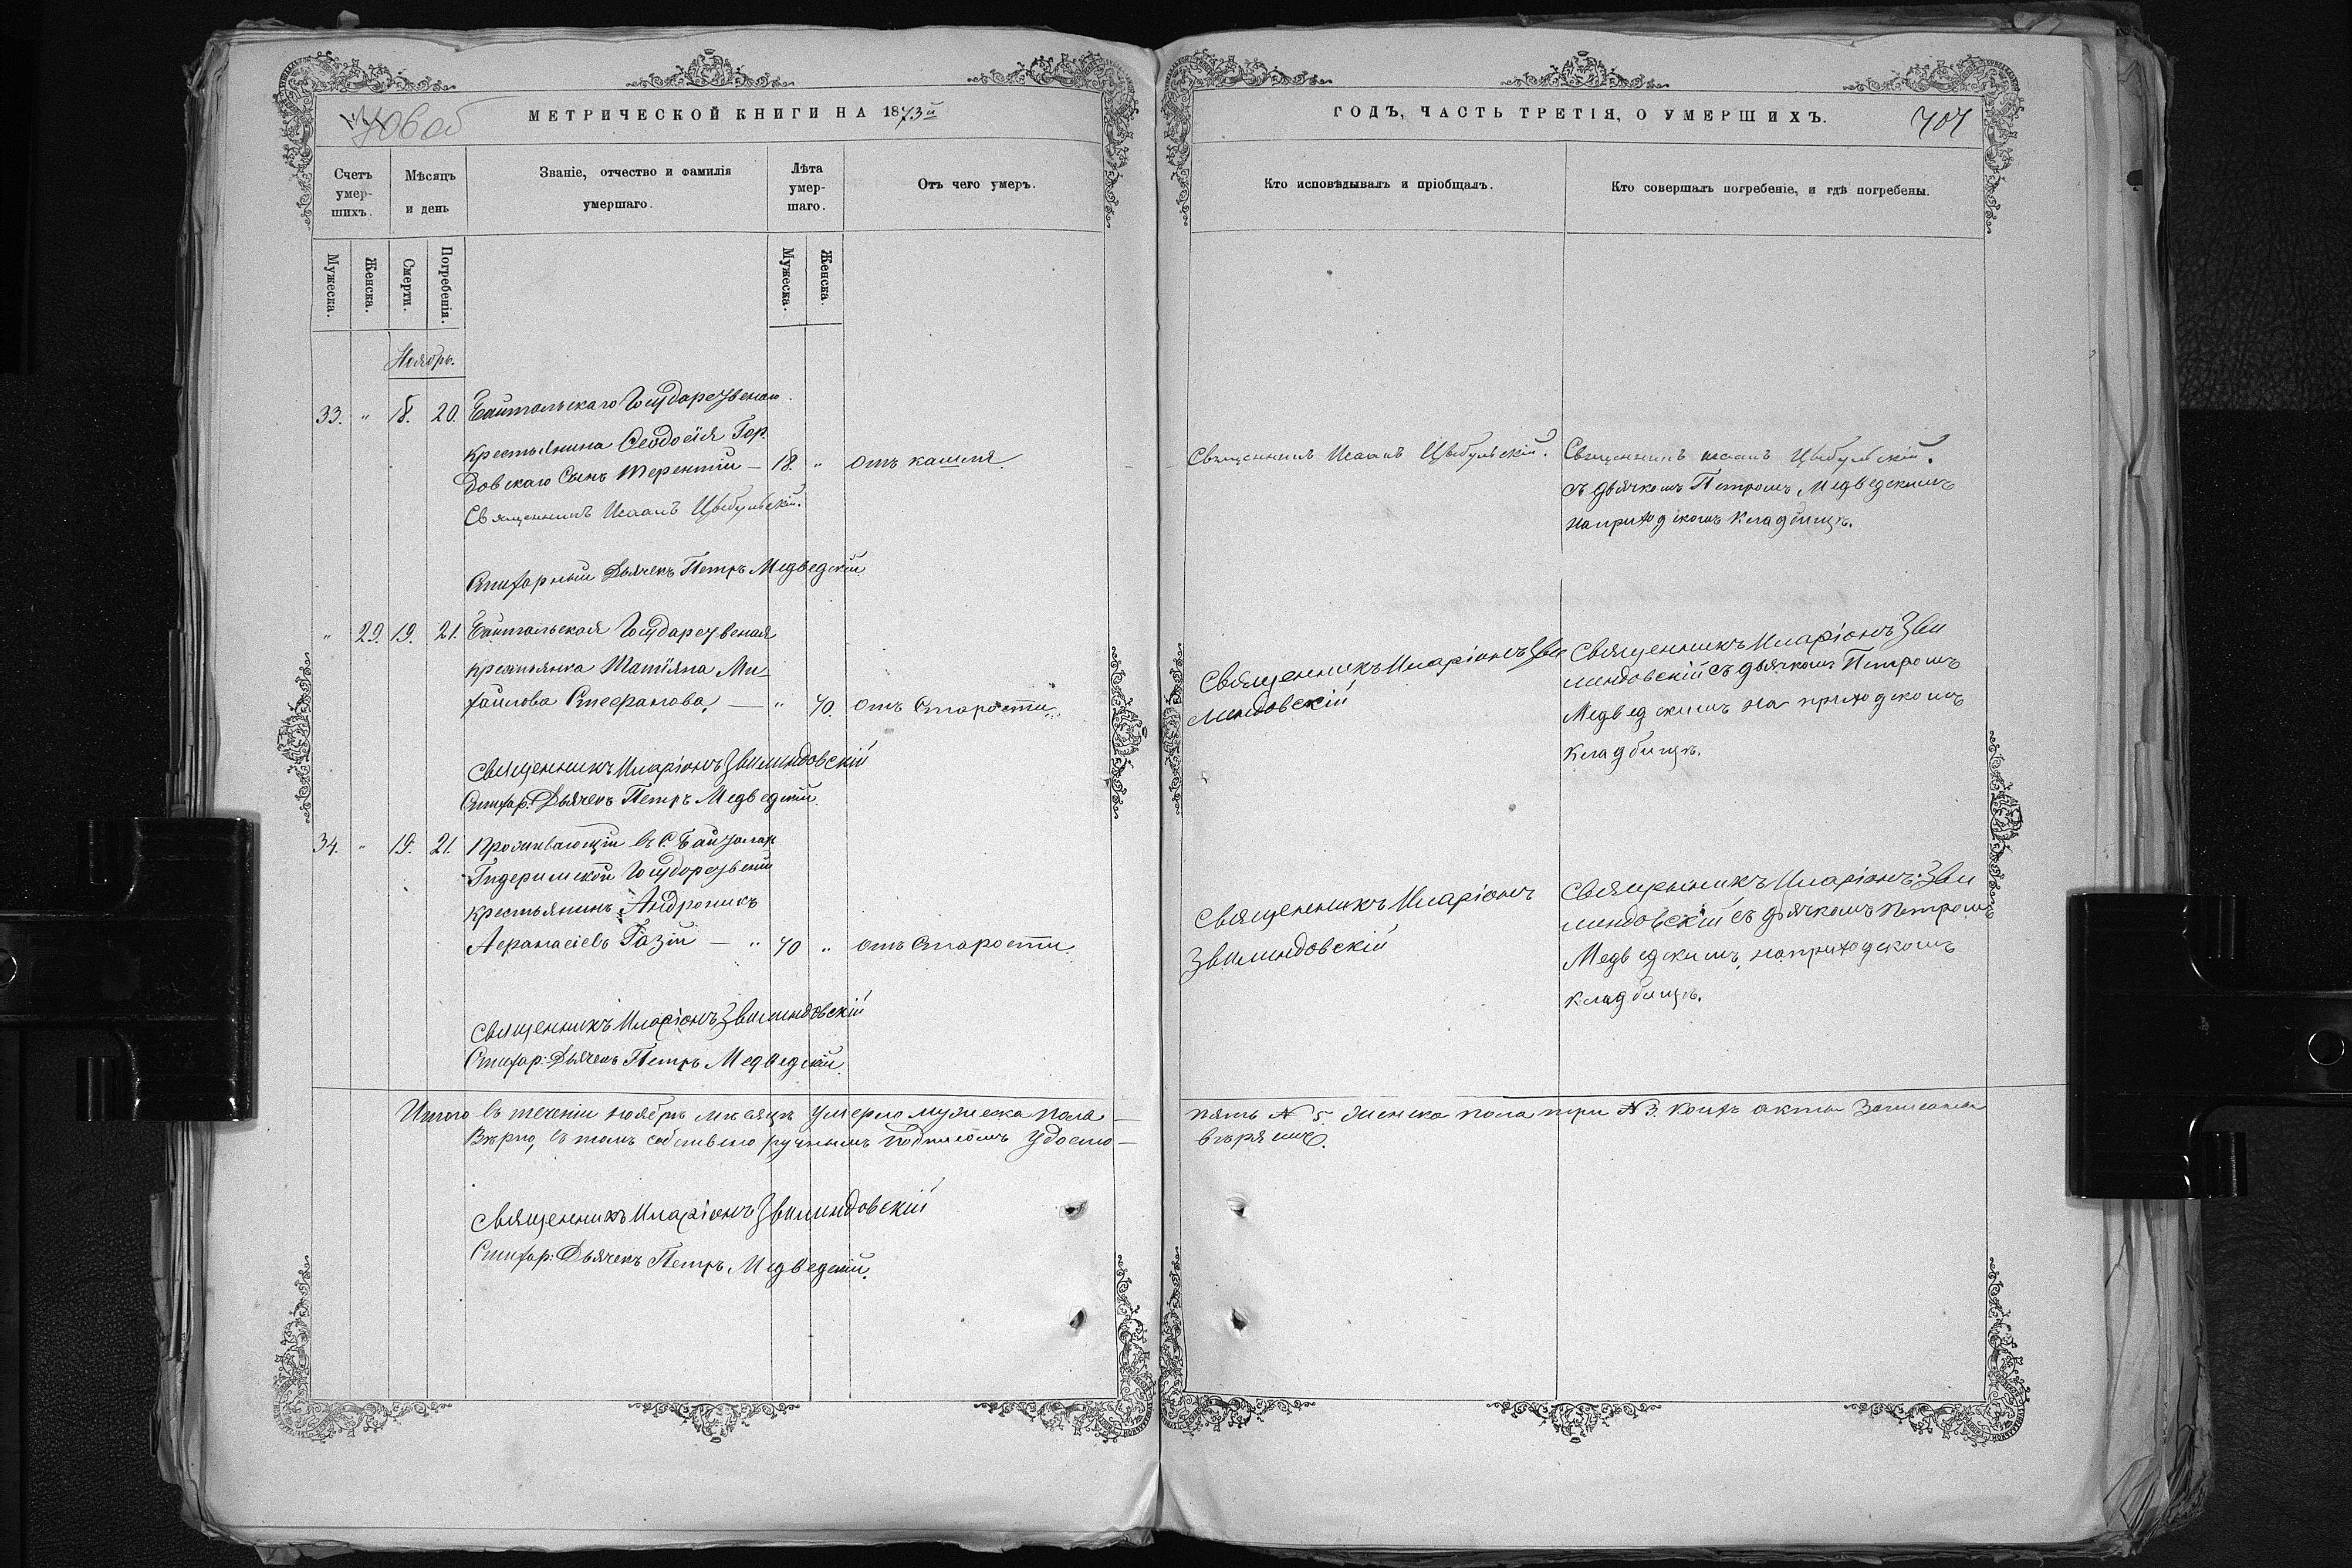 706 об
МЕТРИЧЕСКОЙ КНИГИ НА 1873й
Счетъ умер-шихъ.
Мѣсяцъ и день
Званіе, отчество и фамилія умершаго.
Лѣта умер-шаго.
Отъ чего умеръ.
Мужеска.
Женска.
Смерти.
Погребенія.
Мужеска.
Женска.
Ноябрь.
33. " 18. 20. Байтальскаго Государственаго
крестьянина Ѳеодосія Гор
довскаго Сынъ Терентій — 18. " отъ кашля.
Священникъ Исаакъ Цыбульскій.
Стихарный Дьячекъ Петръ Медведскій
" 29. 19. 21. Байтальская Государственая
крестьянка Татіяна Ми-
хайлова Стефанова, — " 70. отъ Старости.
Священникъ Иларіонъ Звилиндовскій
Стихар: Дьячекъ Петръ Медведскій.
34. " 19. 21. Проживающій въ С. Байталахъ
Гидеримской Государствений
крестьянинъ Андроникъ
Аѳанасіевъ Газій — " 70 " отъ Старости.
Священникъ Иларіонъ Звилиндовскій
Стихар: Дьячекъ Петръ Медведскій.
Итого въ теченіи ноябрь мѣсяцѣ умерло мужеска пола —
Вѣрно, въ томъ собственоручнымъ подписомъ удосто —
Священникъ Иларіонъ Звилиндовскій
Стихар: Дьячекъ Петръ Медведскій.
ГОДЪ, ЧАСТЬ ТРЕТІЯ, О УМЕРШИХЪ.
707
Кто исповѣдывалъ и пріобщалъ.
Кто совершалъ погребеніе, и гдѣ погребены.
Священникъ Исаакъ Цыбульскій. Священникъ Исаакъ Цыбульскій.
съ дьячкомъ Петромъ Медведскимъ
на приходскомъ кладбищѣ.
Священникъ Иларіонъ Зви
линдовскій
Священникъ Иларіонъ Зви
линдовскій съ дьячкомъ Петромъ
Медведскимъ на приходскомъ
кладбищѣ.
Священникъ Иларіонъ
Звилиндовскій
Священникъ Иларіонъ Зви
линдовскій съ дьячкомъ Петромъ
Медведскимъ, на приходскомъ
кладбищѣ.
пять № 5. женска пола три № 3. коихъ акты Записаны
вѣряемъ.